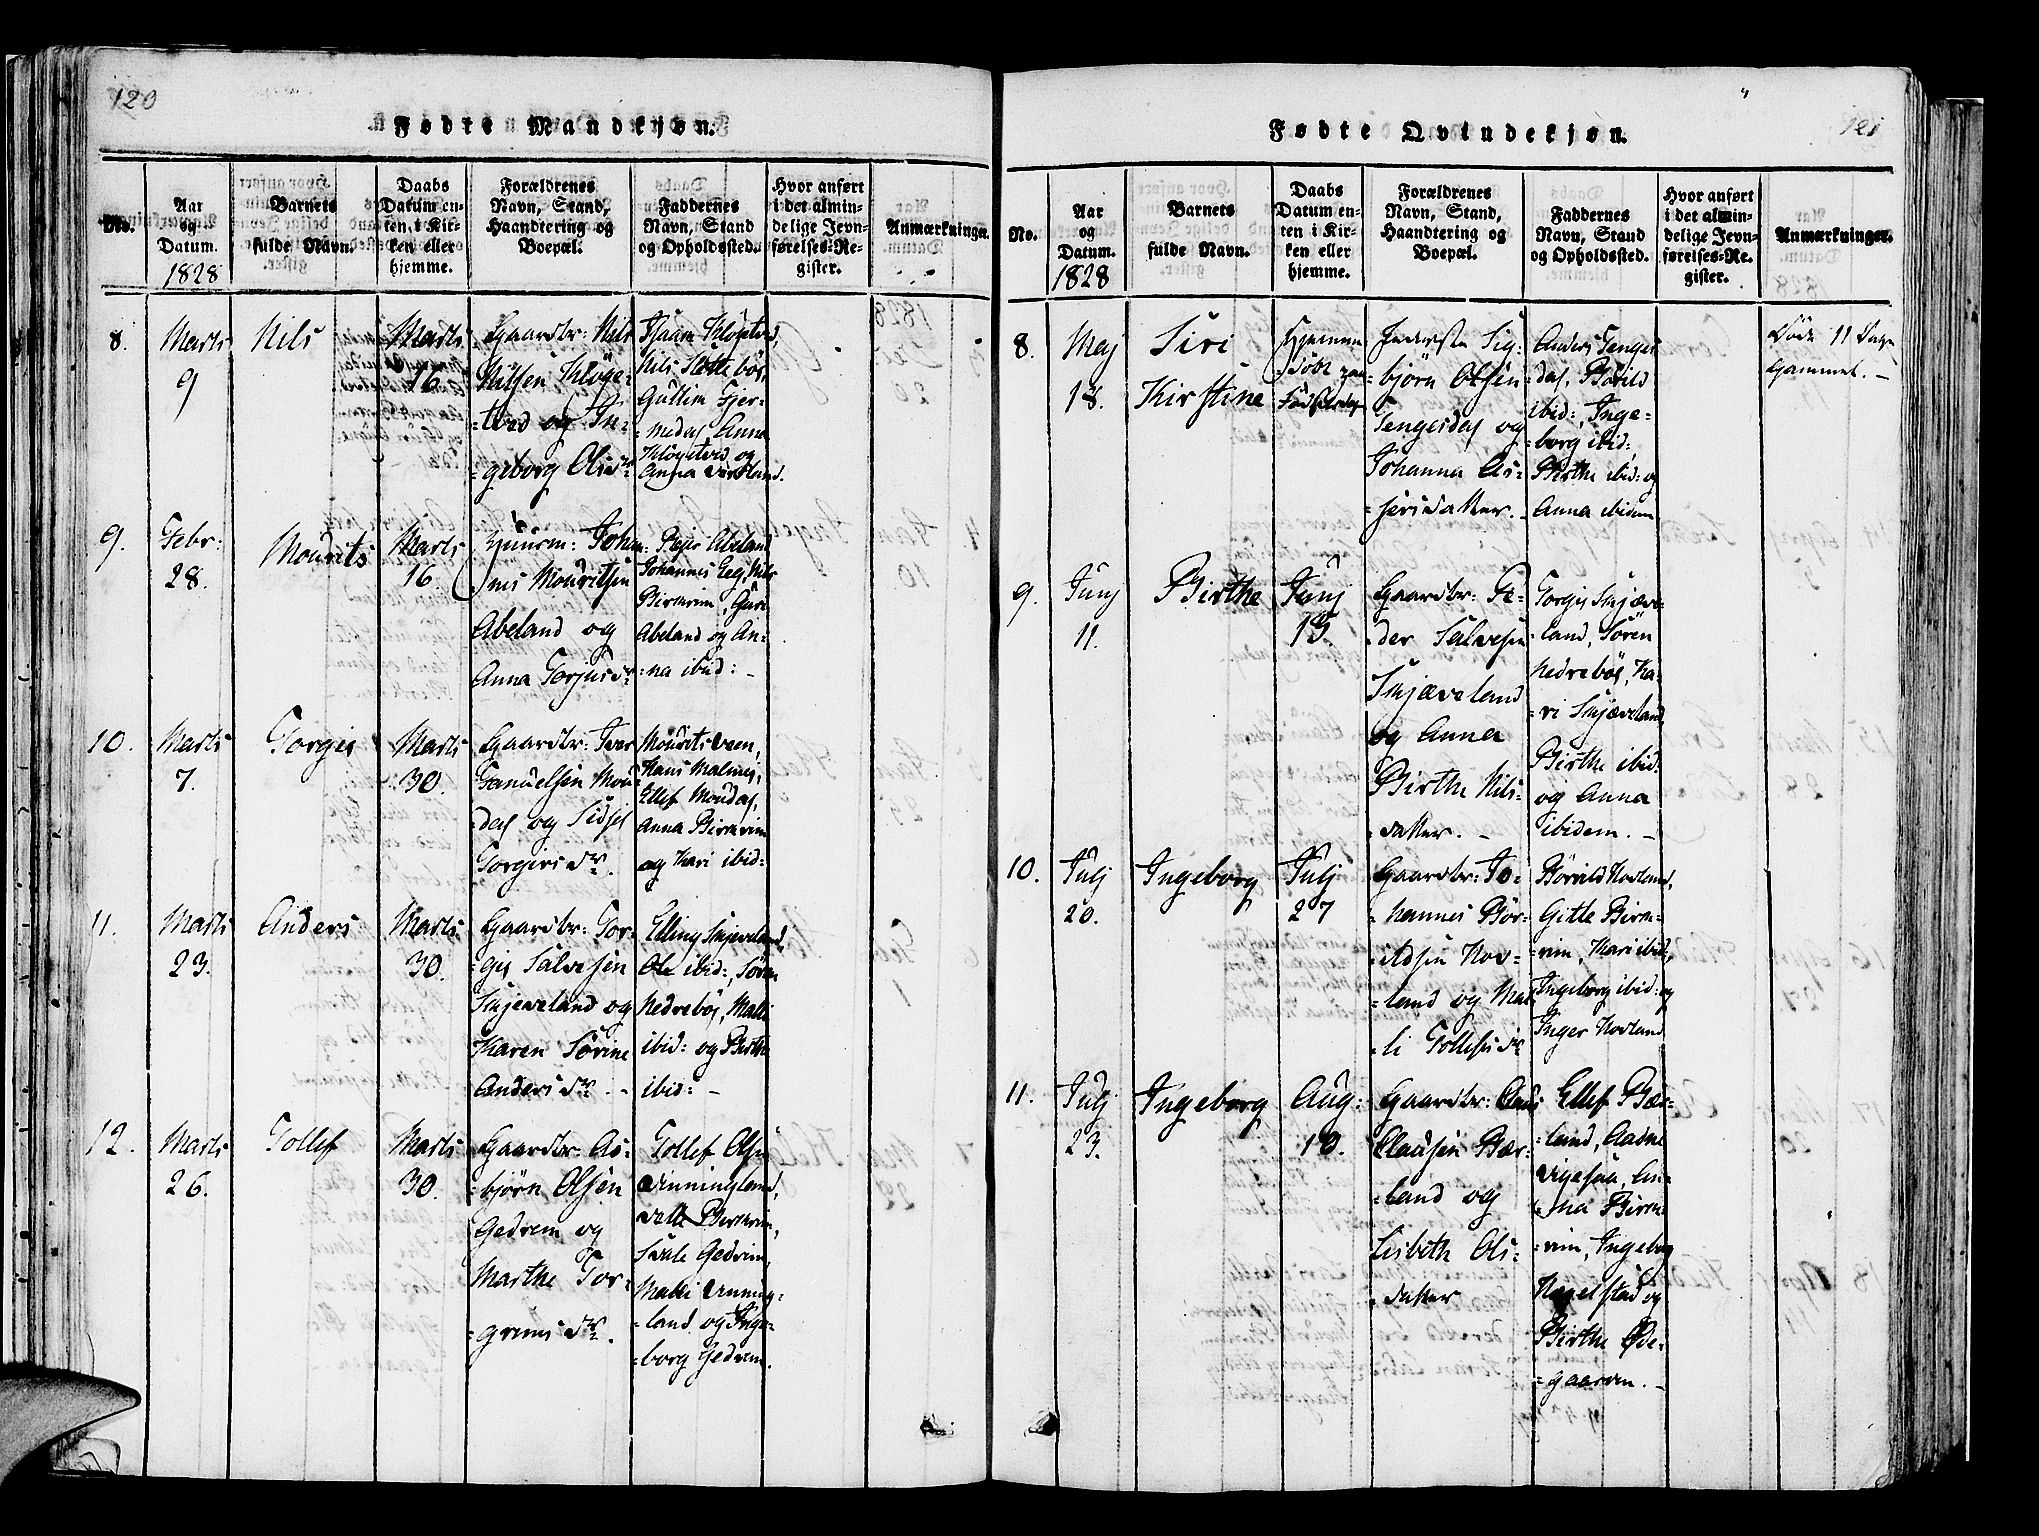 120
Fødte Mandkjøn.
No.
Aar
og
Datum.
1828
Barnets
fulde Navn.
Daabs
Datum en-
ten i Kir-
ken eller
hjemme.
Forældrenes
Navn, Stand,
Haandtering og
Boepæl.
Faddernes
Navn, Stand
og Opholdssted.
Hvor anført
i det almin-
delige Jevn-
førelses-Re-
gister.
Anmærkninger.
8.
Marts
9
Nils
Marts
16.
Gaardbr: Nils
Nilsen Kløge-
-tved og In-
-geborg Olisdr
Nils Slettebøe,
-medal Anna
Kløgetved og
9.
Febr:
28.
Mourits
Marts
16.
Huusm: Johan-
-nes Mouritsen
Abeland og
Anna Torjusdr
Pejer Abeland
Johannes Eeg, Nils
Birkrim, Guri
Abeland og An-
-na ibid: -
10.
Marts
7.
Torgis
Marts
30.
Gaardbr: Iver
Samuelsen Mou-
-dal og Sidsel
Torgersdr.
Mourits Veen,
Hans Malmei,
Ellef Moudal,
Anna Birkrim
og Kari ibid:
11.
Marts
23.
Anders
Marts
30.
Gaardbr: Tor-
-gis Salvesen
Skjeveland og
Karen Sørine
Andersdr. -
Elling Skjeveland,
Ole ibid:, Søren
Nedrebøe, Malli
ibid: og Birthe
ibid: -
12.
Marts
26.
Tollef
Marts
30.
Gaardbr: As-
-bjørn Olsen
Gedrem og
Marthe Tor-
-grimsdr.
Tollef Olsen
Vinningland,
Birkrim,
Gedrem,
Malli Vinning-
-land og Inge-
-borg Gedrem.
121
Fødte Qvindekjøn.
No.
Aar
og
Datum.
1828
Barnets
fulde Navn.
Daabs
Datum en-
ten i Kir-
ken eller
hjemme.
Forældrenes
Navn, Stand,
Haandtering og
Boepæl.
Faddernes
Navn, Stand
og Opholdssted.
Hvor anført
i det almin-
delige Jevn-
førelses-Re-
gister.
Anmærkninger.
8.
Maj
18.
Siri
Kirstine
Hjemme
døbt paa
Fødselsdag
Inderste Sig-
-bjørn Olsen
Tengesdal og
Johanna As-
-serisdatter. -
Anders Tenges
dal, Børild
ibid:, Inge-
-borg ibid:,
Birthe ibid: og
Anna ibidem
Døde 11 Dage
Gammel. -
9.
Junj
11.
Birthe
Junj
15.
Gaardbr: Pe-
-der Salvesen
Skjæveland
og Anna
Birthe Nils-
-datter. -
Torgis Skjæve-
-land, Søren
Nedrebøe, Ka-
-ri Skjæveland
Birthe ibid:
og Anna
ibidem. -
10.
Julj
20.
Ingeborg
Julj
27
Gaardbr: Jo-
-hannes Bør-
-ildsen Hov-
-land og Mal-
-li Tollefsdr
Børild Hovland,
Gitle Birk-
-rim, Kari ibid,
Ingeborg ibid: og
Inger Hovland
11.
Julj
23.
Ingeborg
Aug:
10.
Gaardbr: Claus
Clausen Bær-
-land og
Lisbeth Ols-
-datter
Ellef Bær-
-land, Aadne
Vigesaa, An-
-na Birk-
-rim, Ingeborg
Hægelstad og
Birthe Øde-
-gaarden. -